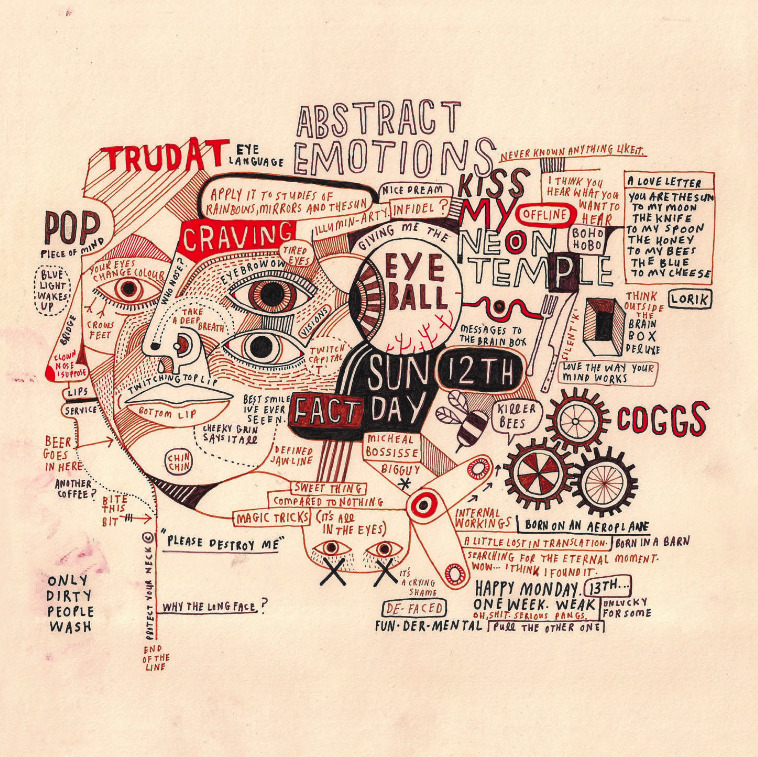 ABSTRACT
EMOTIONS
TRUDAT
EYE
LANGUAGE
NEVER KNOWN ANYTHING LIKE IT.
APPLY IT TO STUDIES OF
RAINBOWS, MIRRORS AND THE SUN
NICE DREAM
ILLUMIN-ARTY.
INFIDEL?
KISS
MY
NEON
TEMPLE
OFFLINE
I THINK YOU
HEAR WHAT YOU
WANT TO
HEAR
BOHO
HOBO
A LOVE LETTER
YOU ARE THE SUN
TO MY MOON
THE KNIFE
TO MY SPOON
THE HONEY
TO MY BEES
THE BLUE
TO MY CHEESE
POP
PIECE OF MIND
CRAVING
TIRED
EYES
GIVING ME THE
EYE
BALL
BLUE
LIGHT
WAKES
UP
YOUR EYES
CHANGE COLOUR
WHO NOSE?
EYEBROWOW
VISIONS
BRIDGE
CROWS
FEET
TAKE
A DEEP BREATH
TWITCH
CAPITAL
T
CLOWN
NOSE
I SUPPOSE
MESSAGES TO
THE BRAIN BOX
SILENT 'K'
THINK
OUTSIDE
THE
BRAIN
BOX
DELUXE
LORIK
LOVE THE WAY YOUR
MIND WORKS
SUN
DAY
12TH
FACT
TWITCHING TOP LIP
BOTTOM LIP
LIPS
SERVICE
BEST SMILE
I'VE EVER
SEEN.
CHEEKY GRIN
SAYS IT ALL
KILLER
BEES
COGGS
BEER
GOES
IN HERE
CHIN
CHIN
DEFINED
JAWLINE
MICHEAL
BOSSISSE
BIGGUY
ANOTHER
COFFEE?
BITE
THIS
BIT
SWEET THING
COMPARED TO NOTHING
MAGIC TRICKS
(IT'S ALL
IN THE EYES)
INTERNAL
WORKINGS
BORN ON AN AEROPLANE
A LITTLE LOST IN TRANSLATION.
BORN IN A BARN
SEARCHING FOR THE ETERNAL MOMENT.
WOW... I THINK I FOUND IT.
"PLEASE DESTROY ME"
PROTECT YOUR NECK ©
IT'S
A CRYING
SHAME
HAPPY MONDAY.
13TH...
ONE WEEK. WEAK
OH, SHIT. SERIOUS PANGS.
UNLUCKY
FOR SOME
ONLY
DIRTY
PEOPLE
WASH
WHY THE LONG FACE?
DE-FACED
FUN-DER-MENTAL
PULL THE OTHER ONE
END
OF THE
LINE